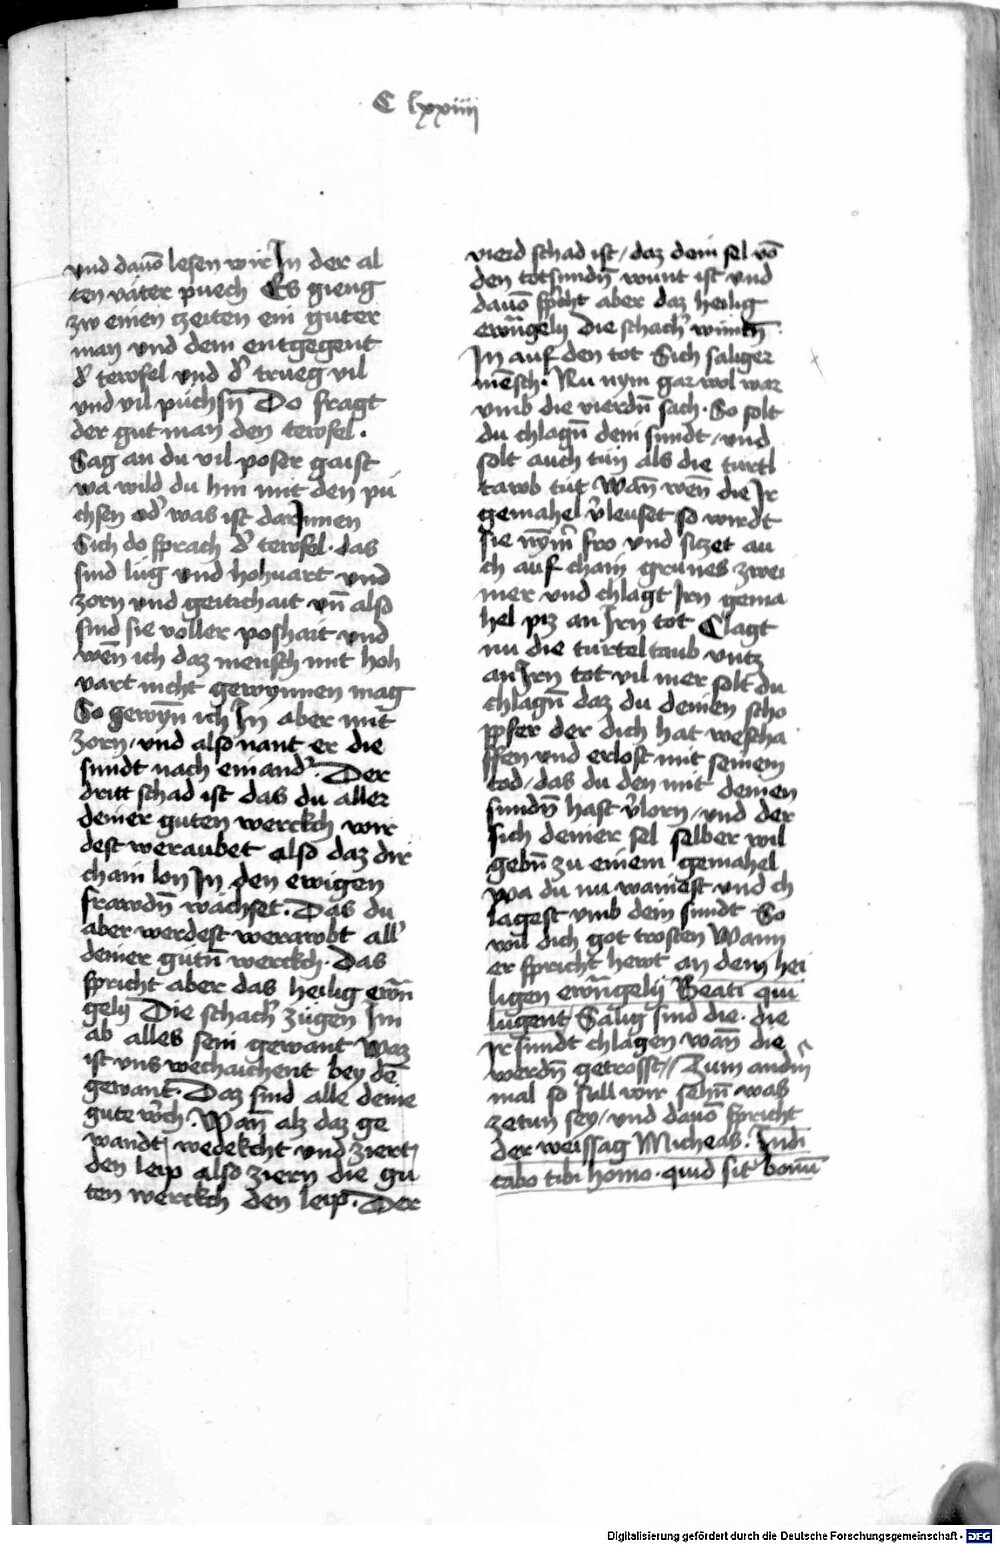 C lxxiiij
und dauō lesen wir In der al
ten väter puech Es gieng
zw einen czeiten ein guter
man und dem entgegent
d' tewfel und d' trueg vil
und vil püchsn̄ Do fragt
der gut man den tewfel.
Sag an du vil poser gaist
wa wild du hin mit den pü
chsen od' was ist darInnen
Sich do sprach d' tewfel. das
sind lüg und hohuart und
zorn und geitichait vn̄ also
sind sie voller poshait und
wēn ich daz mensch mit hoh
vart nicht gewynnen mag
So gewyn̄ ich In aber mit
zorn, und also nant er die
sundt nach einand'. Der
dritt schad ist das du aller
deiner guten werckch wir
dest weraubet also daz dir
chain lon In den ewigen
frawdn̄ wachset. Das du
aber werdest werawbt all'
deiner gutn̄ werckch. Das
spricht aber das heilig ewān
gelij Die schach' zügen Im
ab alles sein gewant Waz
ist vns wechaichent bey dē
gewant. Daz sind alle deine
gute w'ch. Wan̄ alz daz ge
wandt, wedekcht und ziert,
den leip also ziern die gu
ten werckch den leip. Der
vierd schad ist, daz dein sel vō
den totsundn̄ wunt ist und
dauō sp'cht aber daz heilig
ewāngelij Die schach' wuntn̄
In auf den tot Sich saliger
mēsch. Nu nym gar wol war
vmb die vierdn̄ sach. So solt
du chlagn̄ dein sundt, und
solt auch tun als die turtl
tawb tut Wan̄ wen̄ die Ir
gemahel v'leuset so wirdt
sie nym̄' fro und siczet au
ch auf chain grunes zwei
mer und chlagt Irn gema
hel piz an Irn tot Clagt
nu die turteltaub vntz
an Irn tot vil mer solt du
chlagn̄ daz du deinen scho
pfer der dich hat wescha
ffen und erlost mit seinem
tod, das du den mit deinen
sundn̄ hast v'lorn, und der
sich deiner sel selber wil
gebn̄ zu einem gemahel
wa du nu wainest und ch
lagest vmb dein sundt So
wil dich got trosten Wann
er spricht hewt an dem hei
ligen ewāngelij Beati qui
lugent Salig sind die. die
Ir sundt chlagen wan̄ die
werdn̄ getrosst // Zum andn̄
mal so sull wir sehn̄ was
zetun sey, und dauō spricht
der weissag Micheas. Indi
cabo tibi homo. quid sit bonū
Digitalisierung gefördert durch die Deutsche Forschungsgemeinschaft - DFG